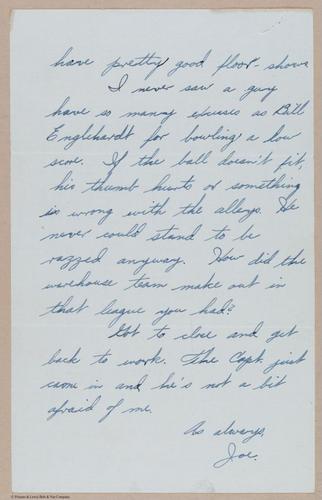 have pretty good floor-shows
I never saw a guy
have so many excuses as Bill
Englehardt for bowling a low
score. If the ball doesn't fit,
his thumb hurts or something
is wrong with the alleys. He
never could stand to be
razzed anyway. How did the
warehouse team make out in
that league you had?
Got to close and get
back to work. The Capt. just
came in and he's not a bit
afraid of me.
As always,
Joe.